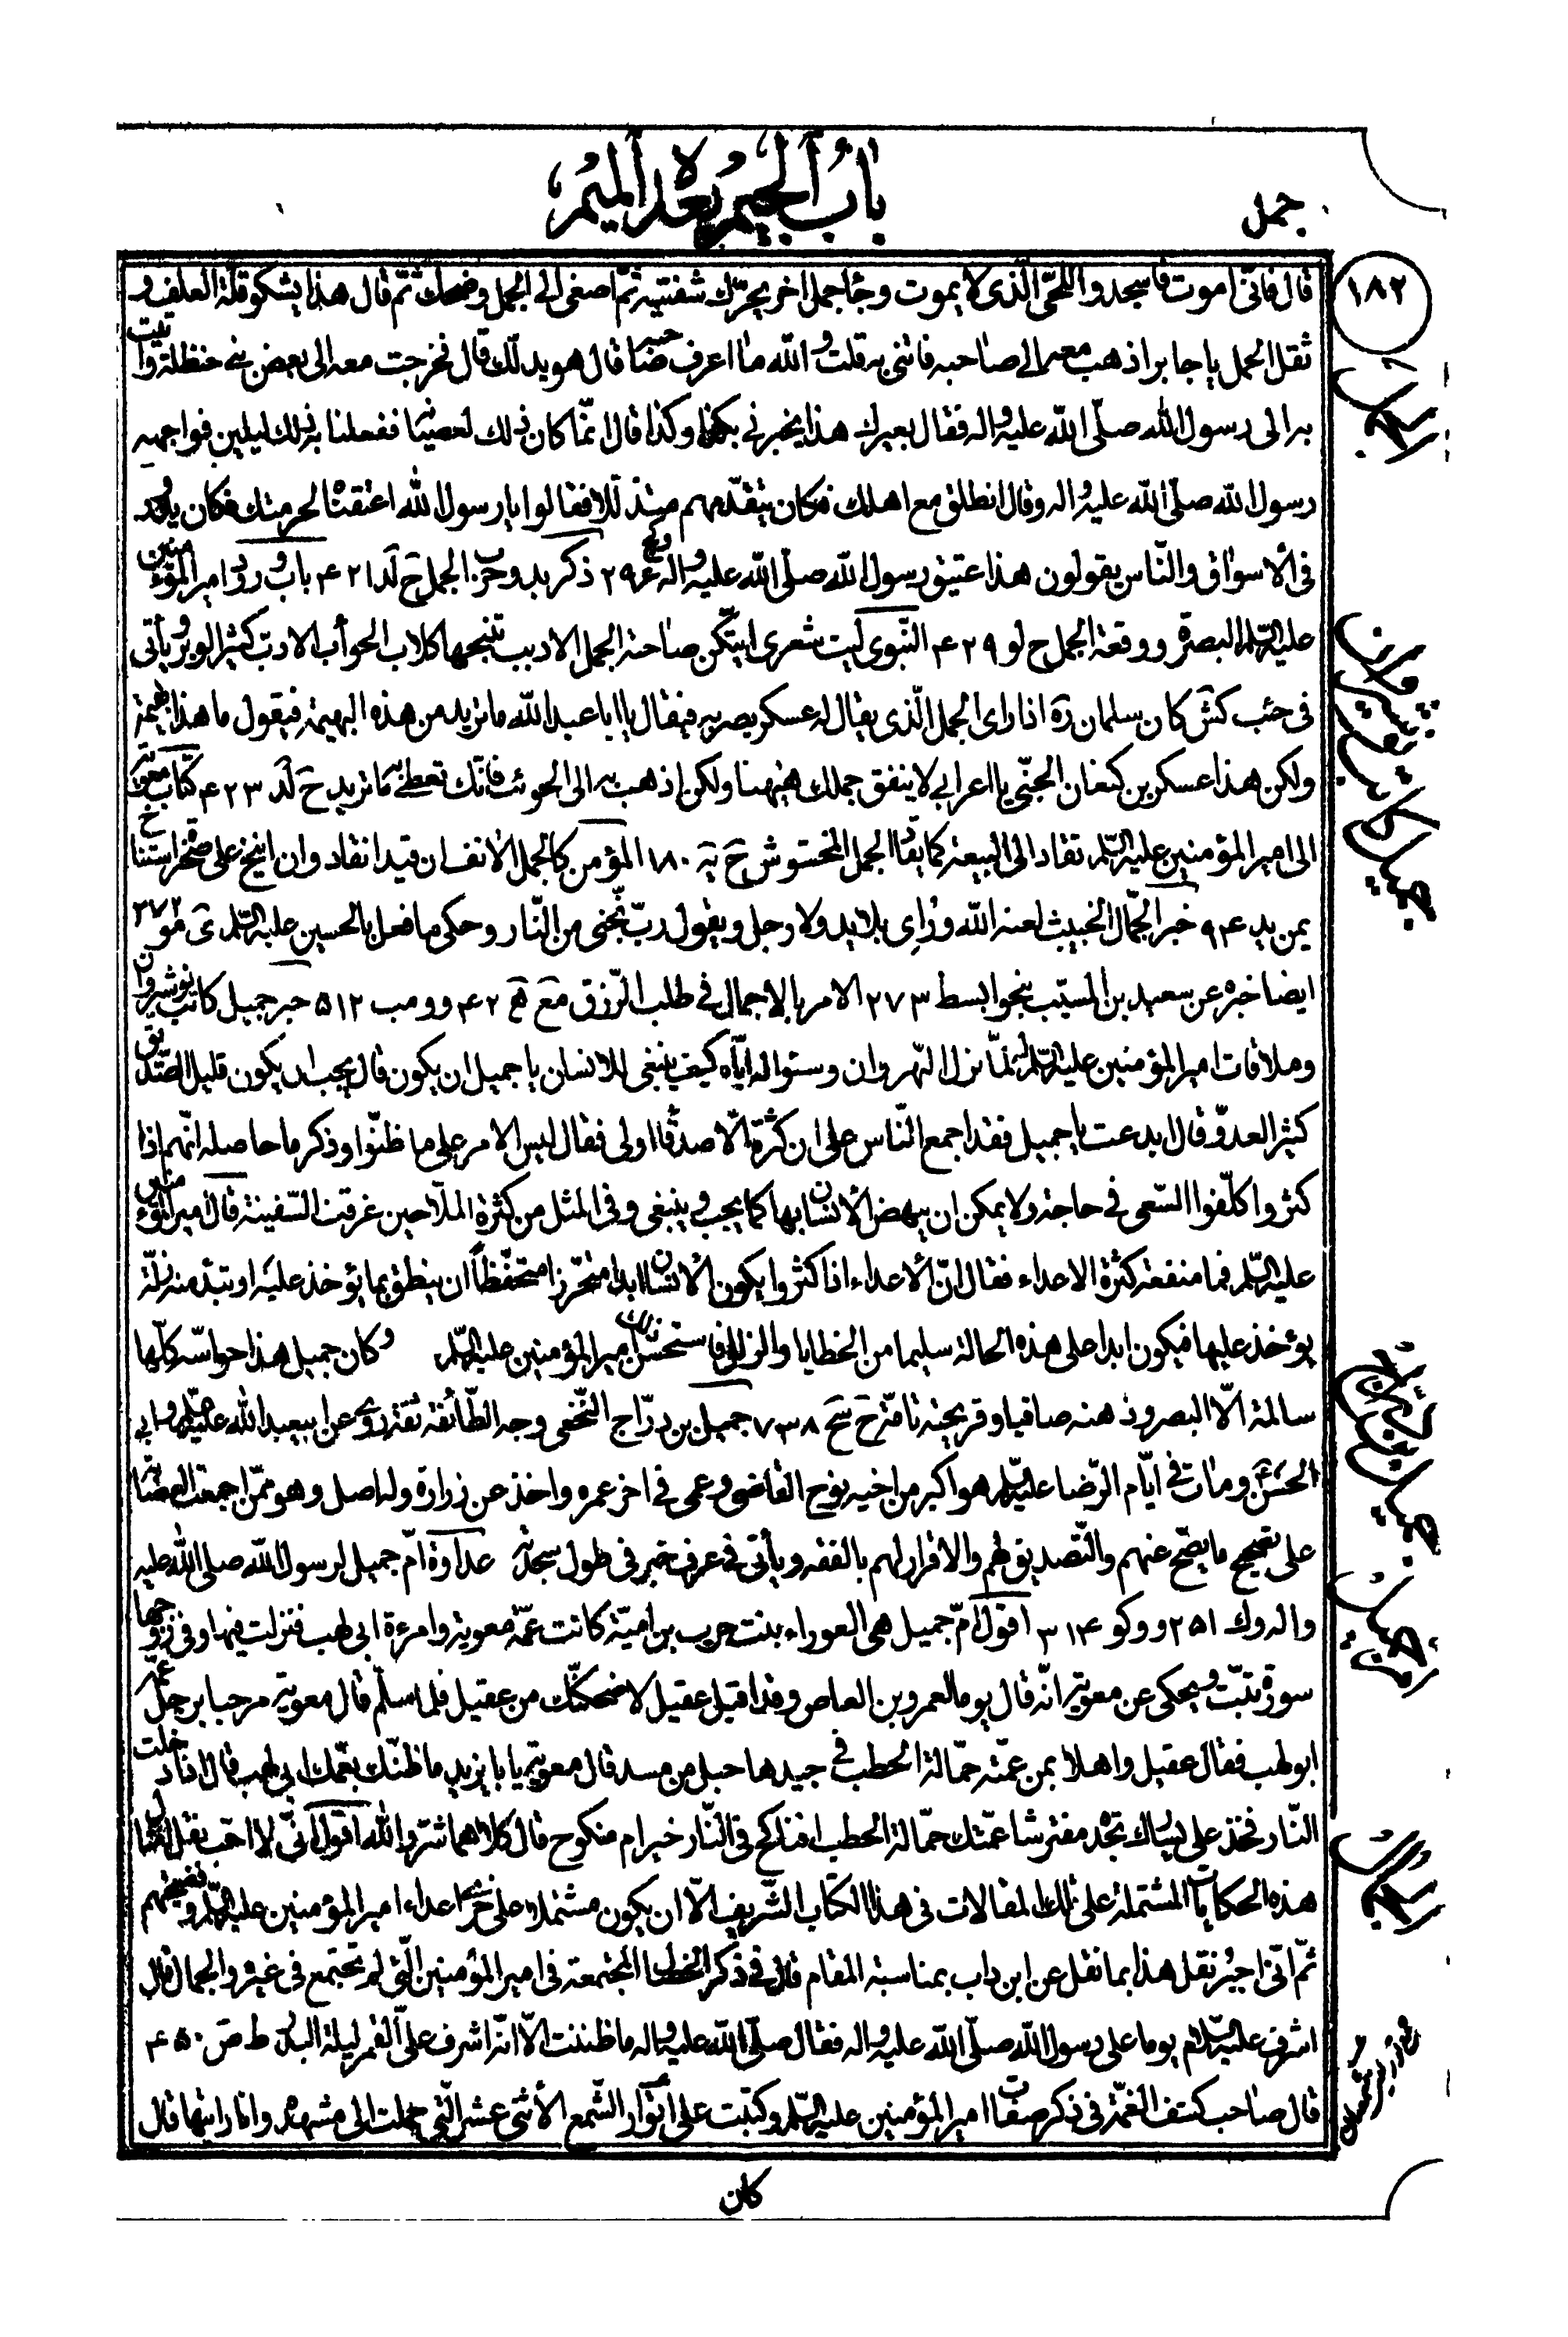 باب الجيم بعده الميم
جمل
١٨٢
قال فانّى اموت فاسجدوا للحىّ الّذى لا يموت وجاء جمل اخر يحرّك شفتيه ثمّ اصغى الى الجمل وضحك ثمّ قال هذا يشكو قلّة العلف و
ثقل الحمل يا جابر اذهب معه الى صاحبه فاتنى به قلت والله ما اعرف صاحبه قال هو يدلّك قال فخرجت معه الى بعض بنى حنظلة واتيت
به الى رسول الله صلّى الله عليه واله فقال بعيرك هذا يخبرنى بكذا وكذا قال انّما كان ذلك لعصيانه ففعلنا به ذلك ليلين فواجهه
رسول الله صلّى الله عليه واله وقال انطلق مع اهلك فكان يتقدّمهم متذلّلا فقالوا يا رسول الله اعتقناه لحرمتك فكان يدور
فى الاسواق والنّاس يقولون هذا عتيق رسول الله صلّى الله عليه واله وكج ٢٩۴ ذكر بدو حرب الجمل ح لد ٤٢١ باب ورود امير المؤمنين
عليه السّلم البصرة ووقعة الجمل ح لو ٤٢٩ النّبوى ليت شعرى ايتكنّ صاحبة الجمل الادبب تنبحها كلاب الحوأب الادبّ كثير الوبر ويأتى
فى حئب كش كان سلمان ره اذا راى الجمل الّذى يقال له عسكر يضربه فيقال يا ابا عبد الله ما تريد من هذه البهيمة فيقول ما هذا بهيمة
ولكن هذا عسكر بن كنعان الجنّى يا اعرابى لا ينفق جملك هيهنا ولكن اذهب به الى الحوئب فانّك تعطى به ما تريد ح لد ٤٢٣ كتاب معوية
الى امير المؤمنين عليه السّلم تقاد الى البيعة كما يقاد الجمل المخشوش ح يه ١٨٠ المؤمن كالجمل الانف ان قيد انقاد وان انيخ على صخر استناخ
يمن يد ٩۴ خبر الجمّال الخبيث لعنه الله وراى بلا يد ولا رجل ويقول ربّ نجّنى من النّار وحكى ما فعل بالحسين عليه السّلم ى مو ٢٧٢
ايضا خبره عن سعيد بن المسيّب بنحو ابسط ٢٧٣ الامر بالاجمال فى طلب الرّزق مع مج ٤٢ وومب ٥١٢ خبر جميل كاتب نوشيروان
وملاقات امير المؤمنين عليه السّلم لمّا نزل النّهروان وسئواله ايّاه كيف ينبغى للانسان يا جميل ان يكون قال يجب ان يكون قليل الصّديق
كثير العدوّ قال ابدعت يا جميل فقد اجمع النّاس على ان كثرة الاصدقاء اولى فقال ليس الامر على ما ظنّوا وذكر ما حاصله انّهم اذا
كثروا كلّفوا السّعى فى حاجة ولا يمكن ان ينهض الانسان بها كما يجب وينبغى وفى المثل من كثرة الملّاحين غرقت السّفينة قال امير المؤمنين
عليه السّلم فما منفعة كثرة الاعداء فقال انّ الاعداء اذا كثروا يكون الانسان ابدا متحرّزا متحفّظا ان ينطق بما يؤخذ عليه او تبدّ منه زلّة
يؤخذ عليها فيكون ابدا على هذه الحالة سليما من الخطايا والزلل فاستحسن ذلك امير المؤمنين عليه السّلم وكان جميل هذا حواسّه كلّها
سالمة الّا البصر وذهنه صافيا وقريحته تامّة ح سح ٧٣٨ جميل بن درّاج النّخعى وجه الطّائفة ثقة روى عن ابيعبد الله عليه السّلم وابى
الحسن ع ومات فى ايّام الرّضا عليه السّلم هو اكبر من اخيه نوح القاضى وعمى فى اخر عمره واخذ عن زرارة وله اصل وهو ممّن اجمعت العصابة
على تصحيح ما يصّح عنهم والتّصديق لهم والاقرار لهم بالفقه ويأتى فى عرف خبر فى طول سجدته عداوة امّ جميل لرسول الله صلى الله عليه
واله وك ٢٥١ ووكو ٣١۴ اقول امّ جميل هى العوراء بنت حرب بن اميّة كانت عمّة معوية وامرءة ابى لهب فنزلت فيها وفى زوجها
سورة تبّت ويحكى عن معوية انّه قال يوما لعمرو بن العاص وقد اقبل عقيل لاضحكنّك من عقيل فلما سلّم قال معوية مرحبا برجل عمّه
ابو لهب فقال عقيل واهلا بمن عمّته حمّالة الحطب فى جيدها حبل من مسد قال معوية يا ابا يزيد ما ظنّك بعمّك ابى لهب قال اذا دخلت
النّار فخذ على يسارك تجده مفترشا عمّتك حمّالة الحطب افناكح فى النّار خير ام منكوح قال كلاهما شرّ والله اقول انّى لا احبّ نقل امثال
هذه الحكايات المشتملة على تلك المقالات فى هذا الكتاب الشّريف الّا ان يكون مشتملا على خزى اعداء امير المؤمنين عليه السّلم وفضيحتهم
ثمّ انّى اجبر نقل هذا بما نقل عن ابن داب بمناسبة المقام قال فى ذكر الخصال المجتمعة فى امير المؤمنين الّتى لم تجتمع فى غيره والجمال قال
اشرف عليه السّلام يوما على رسول الله صلّى الله عليه واله فقال صلّى الله عليه واله ما ظننت الّا انّه اشرف علىّ القمر ليلة البدر ط ص ٤٥٠
قال صاحب كشف الغمّة فى ذكر صفات امير المؤمنين عليه السّلم وكتبت على انوار الشّمع الاثنى عشر الّتى حملت الى مشهده وانا رايتها قال
كان